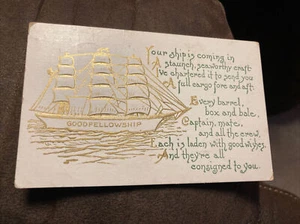 Your ship is coming in
A staunch, seaworthy craft.
I've chartered it to send you
A full cargo fore and aft.
Every barrel,
box and bale,
Captain, mate,
and all the crew,
Each is laden with good wishes
And they're all
consigned to you.
GOODFELLOWSHIP